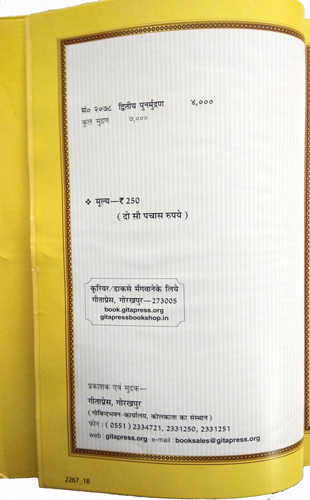 सं० २०७८ द्वितीय पुनर्मुद्रण ४,०००
कुल मुद्रण ७,०००
❖ मूल्य—₹ 250
( दो सौ पचास रुपये )
कूरियर/डाकसे मँगवानेके लिये
गीताप्रेस, गोरखपुर—273005
book.gitapress.org
gitapressbookshop.in
प्रकाशक एवं मुद्रक—
गीताप्रेस, गोरखपुर
( गोबिन्दभवन-कार्यालय, कोलकाता का संस्थान )
फोन : ( 0551 ) 2334721, 2331250, 2331251
web : gitapress.org e-mail : booksales@gitapress.org
2267_1B